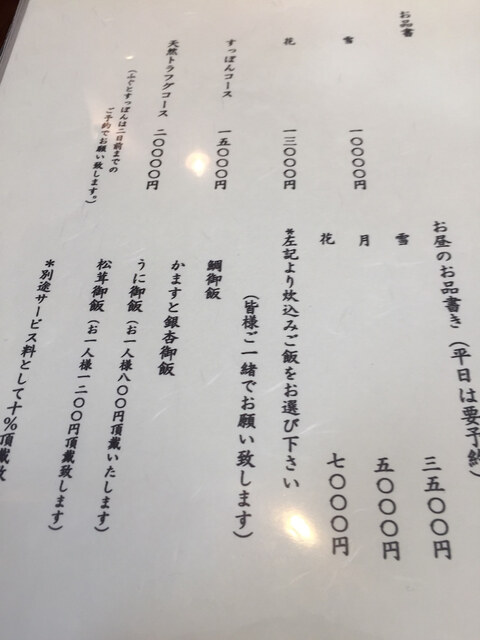 お品書
雪 一〇〇〇〇円
花 一三〇〇〇円
すっぽんコース 一五〇〇〇円
天然トラフグコース 二〇〇〇〇円
(ふぐとすっぽんは二日前までの
ご予約でお願い致します。)
お昼のお品書き(平日は要予約)
雪 三五〇〇円
月 五〇〇〇円
花 七〇〇〇円
*左記より炊込みご飯をお選び下さい
(皆様ご一緒でお願い致します)
鯛御飯
かますと銀杏御飯
うに御飯(お一人様八〇〇円頂戴いたします)
松茸御飯(お一人様一二〇〇円頂戴致します)
*別途サービス料として十%頂戴致